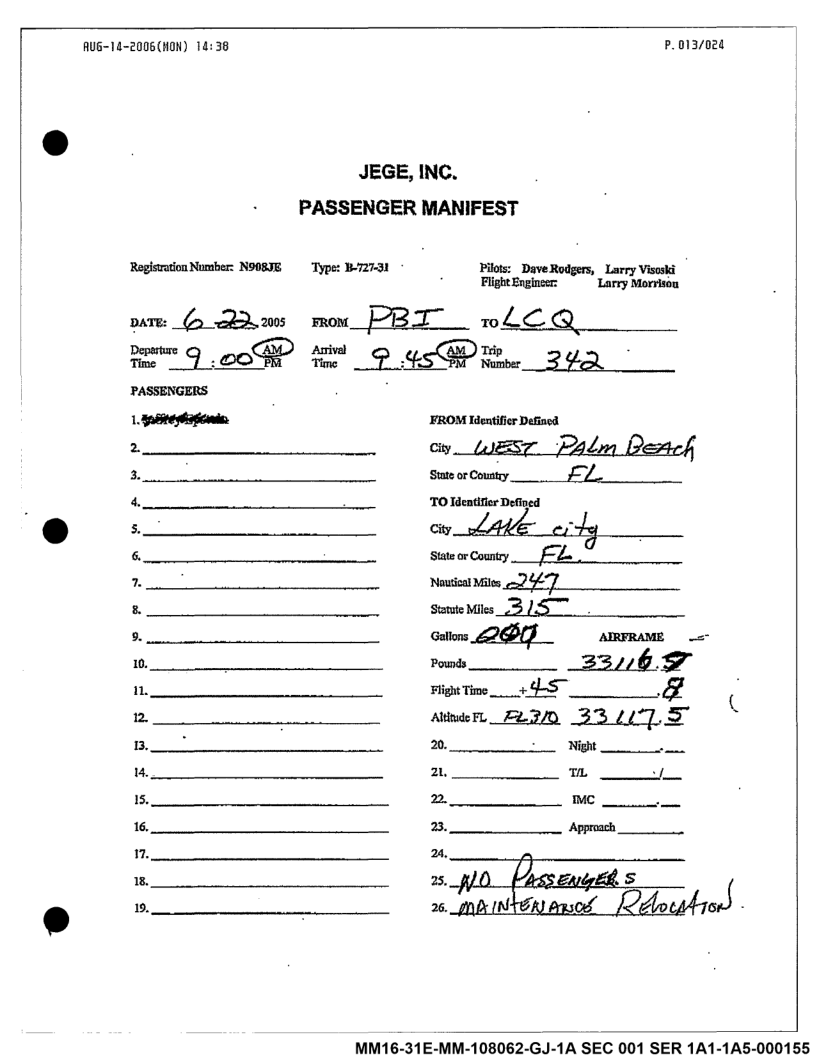 AUG-14-2006(MON) 14:38 P.013/024
JEGE, INC.
PASSENGER MANIFEST
Registration Number: N908JE Type: B-727-31 Pilots: Dave Rodgers, Larry Visoski
Flight Engineer: Larry Morrison
DATE: 6 22 2005 FROM PBI TO LCQ
Departure Time 9:00 AM PM Arrival Time 9:45 AM PM Trip Number 342
PASSENGERS
1. FROM Identifier Defined
2. City WEST PALM BEACH
3. State or Country FL
4. TO Identifier Defined
5. City LAKE city
6. State or Country FL.
7. Nautical Miles 247
8. Statute Miles 315
9. Gallons AIRFRAME
10. Pounds 33116.
11. Flight Time +45 .8
12. Altitude FL FL310 33117.5
13. 20. Night
14. 21. T/L /
15. 22. IMC
16. 23. Approach
17. 24.
18. 25. NO PASSENGERS
19. 26. MAINTENANCE RELOCATION
MM16-31E-MM-108062-GJ-1A SEC 001 SER 1A1-1A5-000155